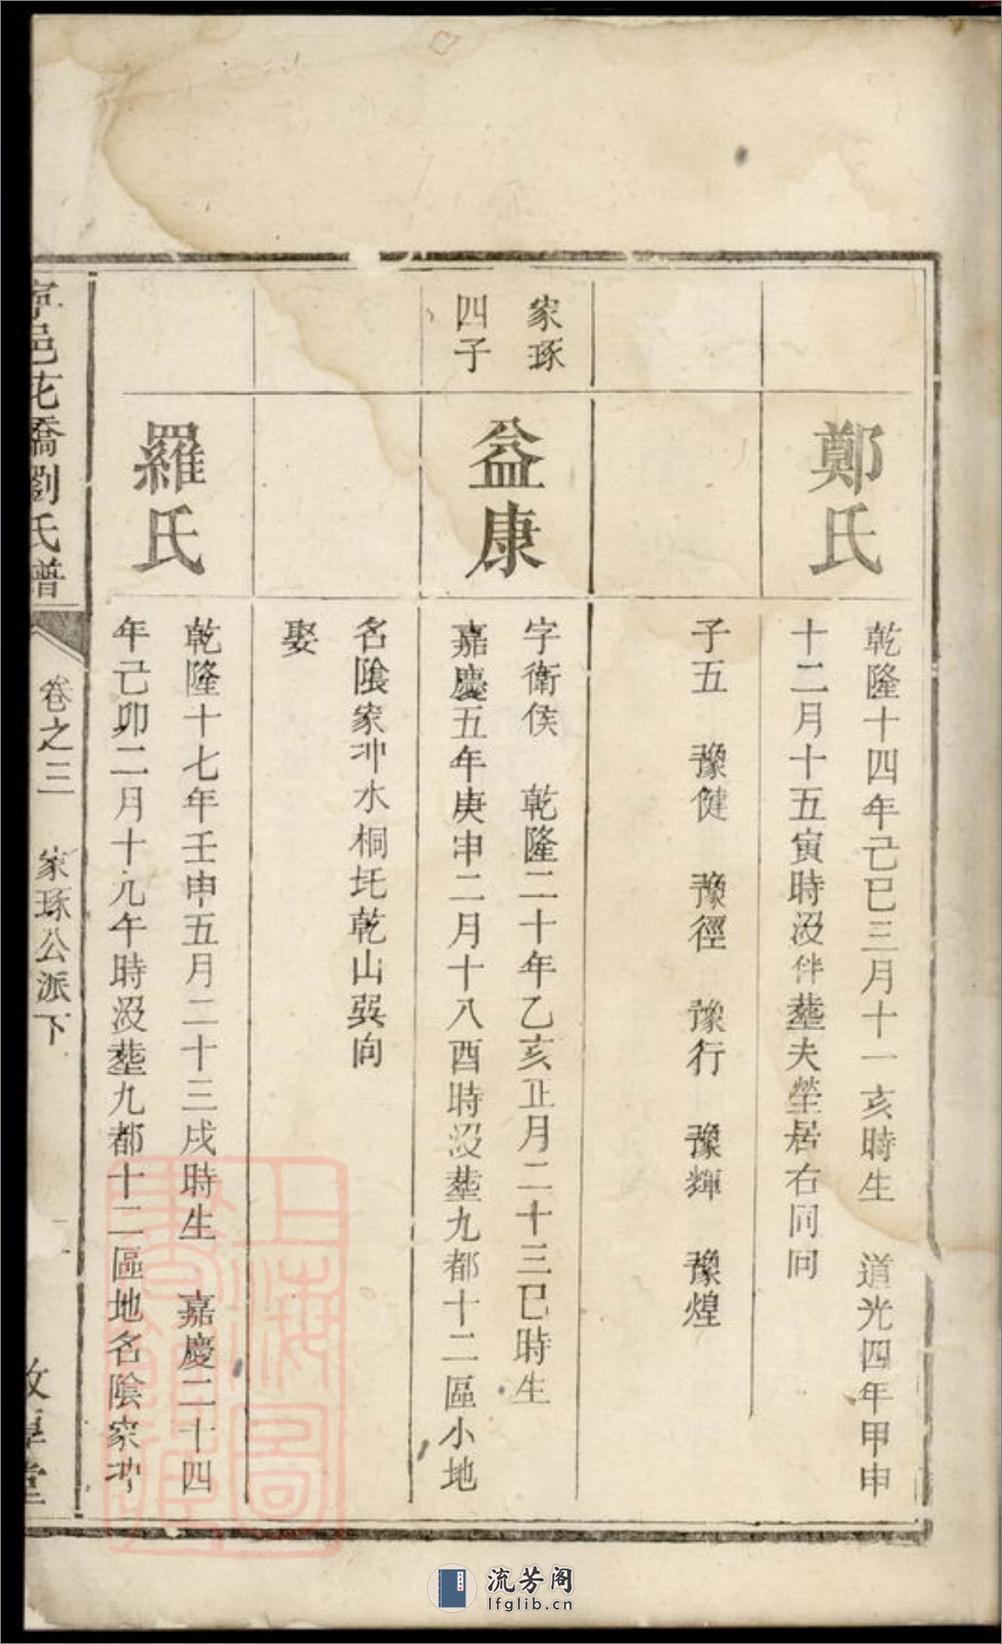 鄭氏
乾隆十四年己巳三月十一亥時生　道光四年甲申
十二月十五寅時沒伴塟夫塋居右同向
子五　豫健　豫徑　豫行　豫輝　豫煌
家琢
四子
益康
字衛侯　乾隆二十年乙亥正月二十三巳時生
嘉慶五年庚申二月十八酉時沒塟九都十二區小地
名陰家冲水桐圫乾山巽向
娶
羅氏
乾隆十七年壬申五月二十三戌時生　嘉慶二十四
年己卯二月十九午時沒塟九都十二區地名陰家冲
寧邑花橋劉氏譜
卷之三　家琢公派下
敦厚堂
上海圖書館藏
流芳阁
lfglib.cn